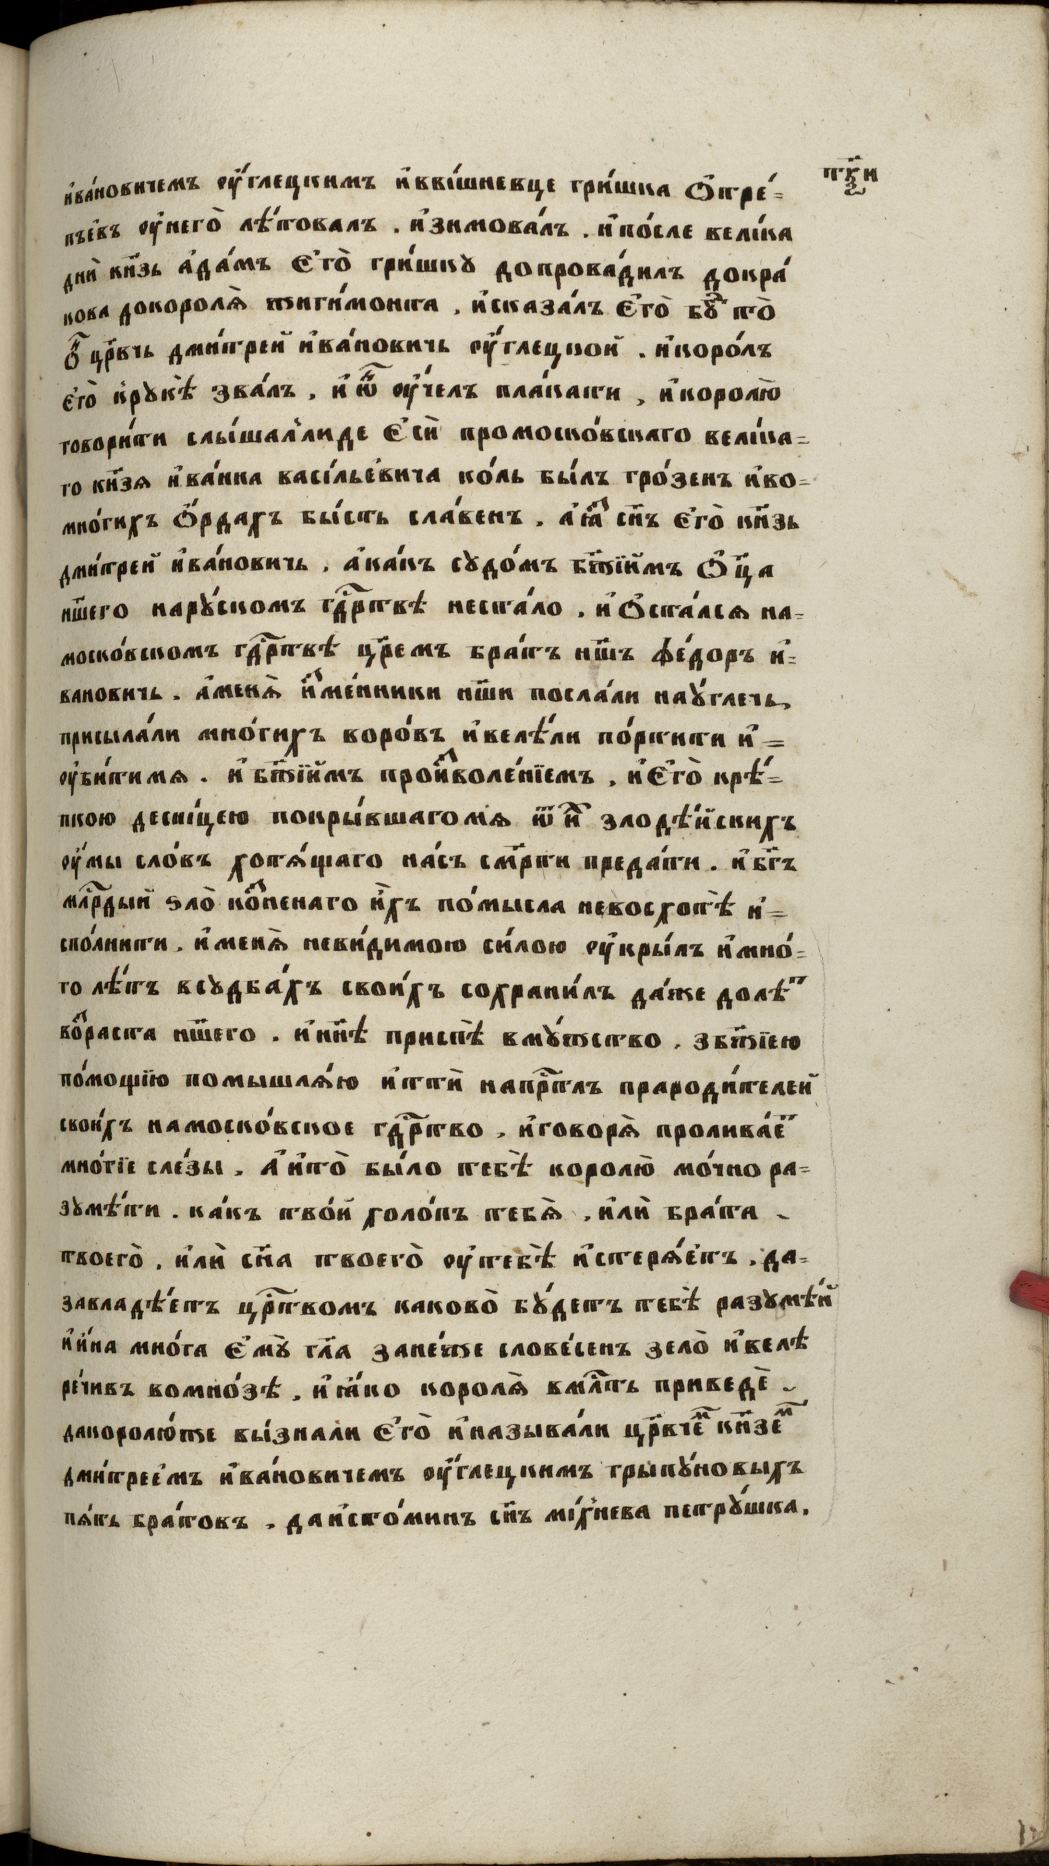 тк҃и
ива́новичемъ ѹ҆́глецкимъ и҆ ввы́шневце гри́шка Ѻ҆тре́=
пьевъ ѹ҆него̀ лѣ́товалъ . и҆зимова́лъ . и҆по́сле вели́ка
днѝ кн҃зь а҆да́мъ Є҆го̀ гри́шку допрова́дилъ докра́
кова докоролѧ̀ жиги́монта , и҆сказа́лъ Є҆го̀ бꙋⷣ то̀
Ѻ҆ⷩ цр҃вчь дми́трей и҆ва́новичь ѹ҆́глецкой . и҆коро́лъ
є҆го̀ крꙋкѣ̀ зва́лъ , и҆ ѿⷩ ѹ҆́челъ пла́кати , и҆королю̀
говори́ти слы́шал'лиде Є҆сѝ промоско́вскаго вели́ка=
го кн҃зѧ и҆ва́нна васи́льевича ко́ль бы́лъ гро́зенъ и҆во=
мно́гихъ Ѻ҆́рдахъ бы́сть сла́венъ . а҆ꙗ҆́ⷥ сн҃ъ Є҆го̀ кн҃зь
дми́трей и҆ва́новичь , а҆ка́къ сꙋдо́мъ бж҃їимъ Ѻ҆ц҃а
нш҃его нарꙋ́скомъ гдⷭ҇ртвѣ неста́ло , и҆Ѻ҆ста́лсѧ на=
моско́вскомъ гдⷭ҇ртвѣ цр҃емъ бра́тъ нш҃ъ ѳе́доръ и҆=
вановичь . а҆менѧ̀ и҆ⷥме́нники нш҃и посла́ли наꙋ́глечь,
присыла́ли мно́гихъ воро́въ и҆велѣ́ли по́ртити и҆=
ѹ҆би́тимѧ . и҆ бж҃їимъ проиⷥволе́нїемъ , и҆Є҆го̀ крѣ́=
пкою десни́цею покры́вшагомѧ ѿ иⷯ злодѣ́йскихъ
ѹ҆мы сло́въ хотѧ́щаго на́съ см҃рти преда́ти . и҆ бг҃ъ
млⷭ҇рдый ѕло̀ коⷥненаго и҆́хъ по́мысла невосхотѣ̀ и҆=
спо́лнити . и҆менѧ̀ неви́димою си́лою ѹ҆кры́лъ и҆мно́=
го лѣ́тъ всꙋдба́хъ свои́хъ сохрани́лъ да́же долѣⷮ
воⷥраста нш҃его . и҆нн҃ѣ приспѣ̀ вмꙋ́жство , збж҃їею
по́мощїю помышлѧ́ю и҆ттѝ напрⷭ҇тлъ прароди́телей
свои́хъ намоско́вское гдⷭ҇ртво , и҆говорѧ̀ проливаеⷮ
мно́гїе сле́зы . а҆ и҆то̀ бы́ло тебѣ̀ королю̀ мо́чно ра=
зꙋмѣ́ти . ка́къ тво́й холо́пъ тебѧ̀ , и҆лѝ бра́та
твоего̀ , и҆лѝ сн҃а твоего̀ ѹ҆тебѣ̀ и҆стерѧ́етъ . да=
завладѣ́етъ црⷭ҇твомъ каково̀ бꙋ́детъ тебѣ̀ разꙋмѣ́й
и҆и҆́на мно́га Є҆мꙋ̀ гл҃а зане́же слове́сенъ зело̀ и҆велѣ
ре́чивъ вомно́зѣ , и҆ ꙗ҆́ко королѧ̀ вмлⷭ҇ть приведѐ
дакоролю́же вы́знали Є҆го̀ и҆называ́ли цр҃вчеⷨ кн҃зеⷨ
дми́треемъ и҆ва́новичемъ ѹ҆́глецкимъ трыпꙋ́новыхъ
пѧ́ть бра́товъ , даи҆сто́минъ сн҃ъ ми́хнева петрꙋ́шка .